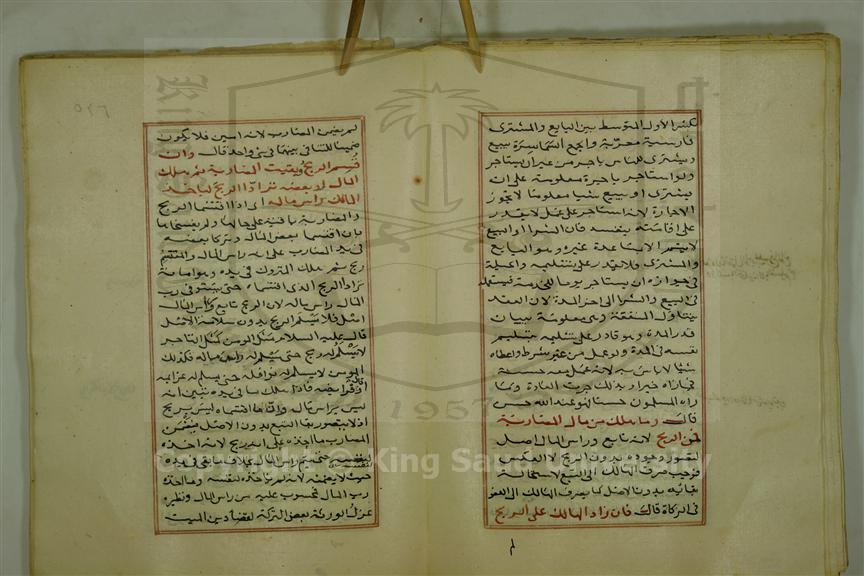 بكسر الأول المتوسط بين البايع والمشترى
فارسية معربة والجمع السماسرة يبيع
ويشترى للناس باجر من غير ان يستاجر
ولو استاجر باجرة معلومة على ان
يشترى او يبيع شيا معلوما لا يجوز
الاجارة لانه استاجر على عمل لا يقدر
على اقامته بنفسه فان الشرا والبيع
لا يتم الا بمساعدة غيره وهو البايع
والمشترى فلا يقدر على تسليمه والحيلة
فى جوازه ان يستاجر يوما للخدمة فيستعمله
فى البيع والشرا الى اخر المدة لان العقد
يتناول المنفعة وهى معلومة ببيان
قدر المدة وهو قادر على تسليمه بتسليم
نفسه فى المدة ولو عمل من غير شرط واعطاه
شيا لا باس به لانه عمل معه حسنة
فجازاه خيرا وبذلك جرت العادة وما
راه المسلمون حسنا فهو عند الله حسن
قال وما هلك من مال المضاربة
فمن الربح لانه تابع وراس المال اصل
لتصور وجوده بدون الربح لا العكس
فوجب صرف الهالك الى التبع لاستحالة
بقائه بدون الاصل كما يصرف الهالك الى العفو
فى الزكاة قال فان زاد الهالك على الربح
لم يضمن المضارب لانه امين فلا يكون
ضمينا للتنافى بينهما فى شى واحد قال وان
قسم الربح وبقيت المضاربة ثم هلك
المال او بعضه ترادا الربح لياخذ
المالك راس ماله اى اذا اقتسما الربح
والمضاربة باقية على حالها ولم يفسخاها
بان اقتسما بعض المال وتركا بعضه
فى يد المضارب على انه راس المال والمقتسم
ربح ثم هلك المتروك فى يده وهو امانة
ترادا الربح الذى اقتسماه حتى يستوفى رب
المال راس ماله لان الربح تابع وراس المال
اصل فلا يسلم الربح بدون سلامة الاصل
قال عليه السلام مثل المومن كمثل التاجر
لا يسلم له ربح حتى يسلم له راس ماله فكذلك
المومن لا يسلم له نوافله حتى يسلم له عزايمه
او قال فرايضه فاذا هلك ما فى يده تبين انه
ليس براس مال وان ما اقتسماه ليس بربح
اذ لا يتصور بقا التبع بدون الاصل فيضمن
المضارب ما اخذه على انه ربح لانه اخذه
لنفسه حتى يتم راس المال بخلاف ما بقى فى يده
حيث لا يضمنه لانه لم ياخذه لنفسه وما اخذه
رب المال محسوب عليه من راس المال ونظيره
عزل الورثة بعض التركة لقضا دين الميت
Copyright © King Saud University
1957